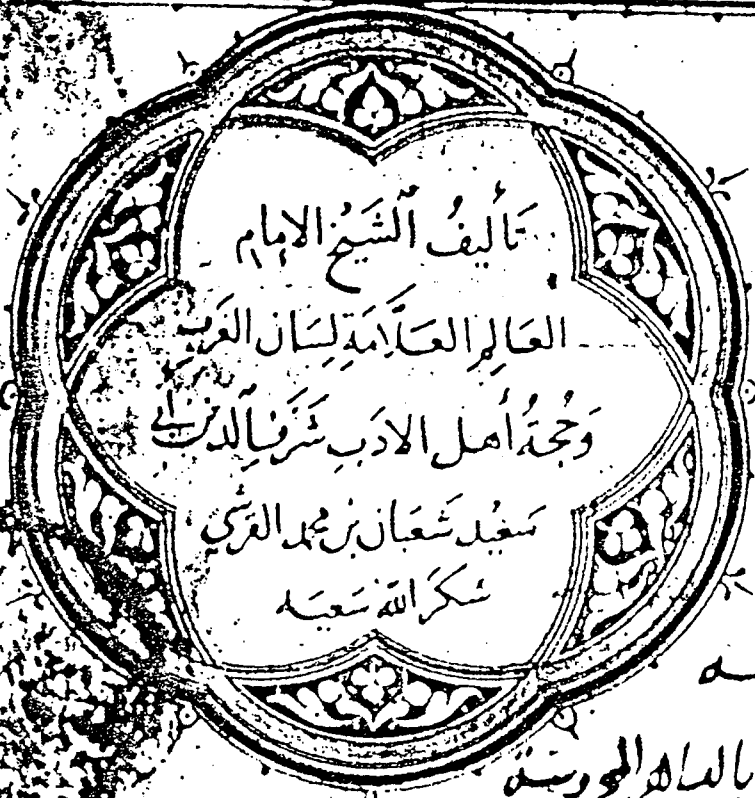 تَأليفُ ٱلشَّيْخِ الإمام
العَالِمِ العَلَّامَةِ لِسَان العَرَبِ
وَحُجَةُ أهل الادَبِ شَرَف الدين أبي
سَعيْد شَعْبَان بن محمد القرَشي
شكَرَ اللّه سَعيَه
بالقاهرة المحروسة